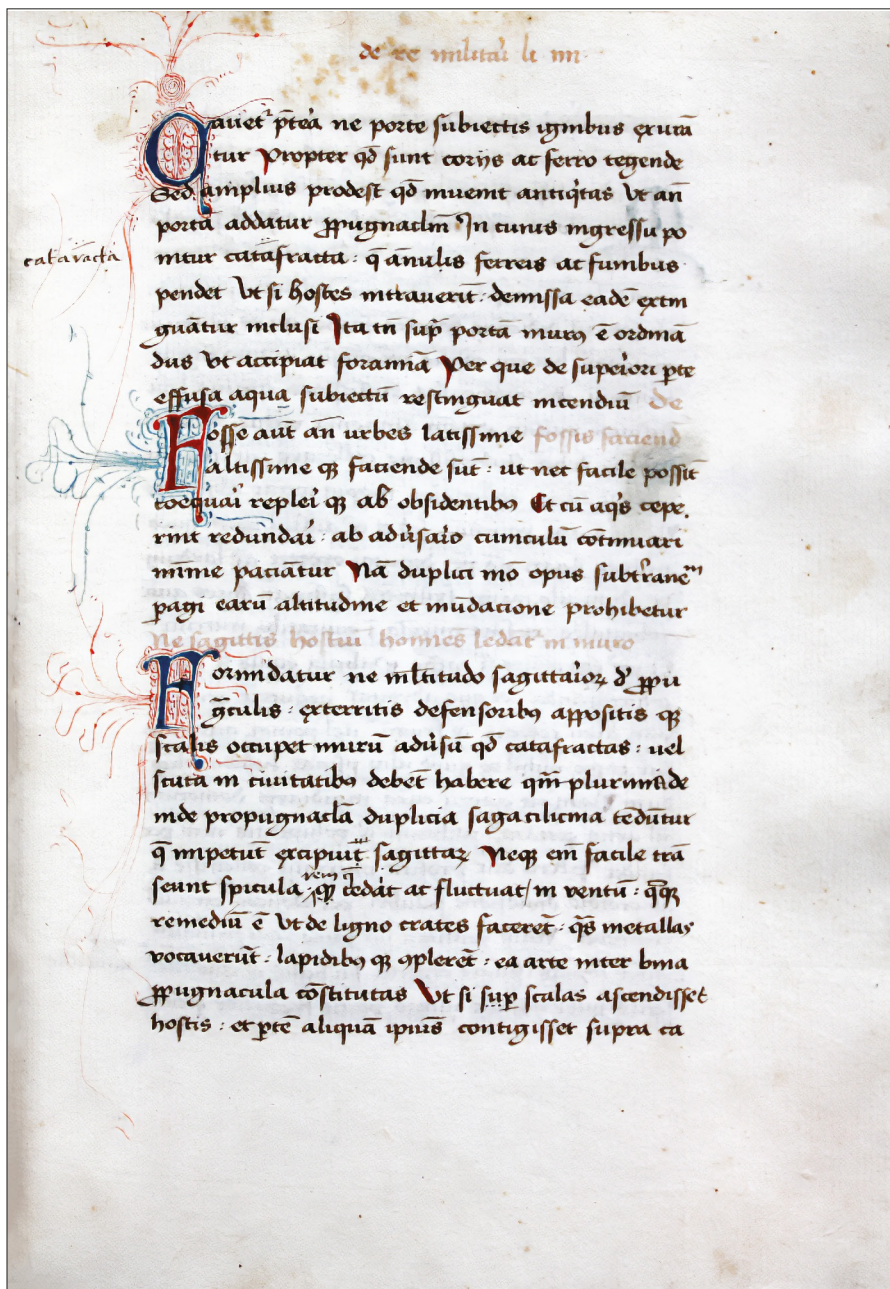 de re militari li iiii
Cauet᷑ p̄t̾ea ne porte subiectis ignibus exurā
tur Propter qd̄ sunt corijs ac ferro tegende
Sed amplius prodest qd̄ inuenit antiq̇tas Vt an̄
portā addatur ꝓpugnaclm̄ In cuius ingressu po
nitur catafracta : q̄ anulis ferreis ac funibus
catarracta
pendet Vt si hostes intrauerīt : demissa eadē extin
guātur inclusi Ita tn̄ sup̄ portā murꝰ ē ordinā
dus Vt accipiat foraminā Per que de superiori ꝑte
effusa aqua subiectū restinguat incendiū de
Fosse aūt an̄ urbes latissime fossis faciend
altissime qꝫ faciende sūt : ut nec facile possīt
coequari repleri qꝫ ab obsidentibꝰ Et cū aq̇s cepe
rint redundari : ab adu̾sario cuniculū cōtinuari
minime paciātur Nā duplici mō opus subt̾raneū
ꝑagi earū altitudine et inūdacione prohibetur
Ne sagittis hostiū homines ledāt᷑ in muro
Formidatur ne ml̄titudo sagittarioꝝ de ꝓpu
gn̄culis : exterritis defensoribꝰ appositis qꝫ
scalis occupet murū adu̾sū qd̄ catafractas : uel
scuta in ciuitatibꝰ debēt habere qm̄ plurimi de
inde propugnacla duplicia saga cilicina tēdūtur
q̄ impetū excipiūt sagittaꝝ Neqꝫ em̄ facile trā
seunt spicula rem qꝫ cedāt ac fluctuāt / in ventū : qꝫ
remediū ē Vt de ligno crates facerēt : qs̄ metallas
vocauerūt : lapidibꝰ qꝫ ꝯplerēt : ea arte inter bina
ꝓpugnacula cōstitutas Vt si sup̄ scalas ascendisset
hostis : et ꝑtē aliquā ipiꝰ contigisset supra ca